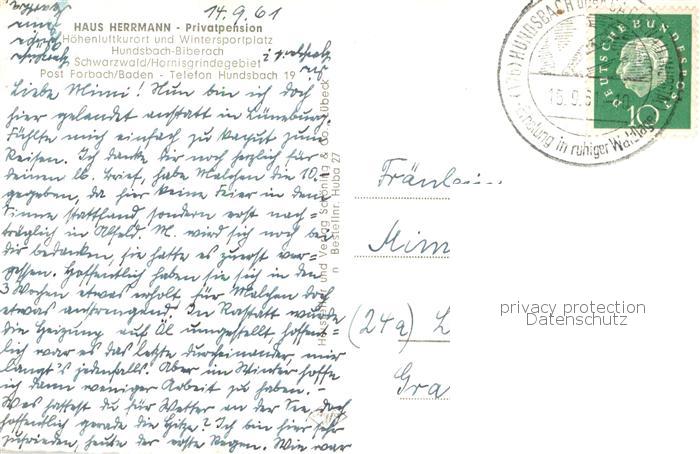 14.9.61
HAUS HERRMANN - Privatpension
Höhenluftkurort und Wintersportplatz
Hundsbach-Biberach
Schwarzwald/Hornisgrindegebiet
Post Forbach/Baden - Telefon Hundsbach 19
Liebe Mimi! Nun bin ich doch
hier gelandet anstatt in Lüneburg.
Fühlte mich einfach zu kaputt zum
Reisen. Ich danke dir noch herzlich für
deinen lb. Brief, habe Malchen die 10.-
gegeben, da hier keine Feier in dem
Sinne stattfand sondern erst nach=
träglich in Alfeld. M. wird sich noch bei
dir bedanken, sie hatte es zuerst ver=
gessen. Hoffentlich haben sie sich in den
3 Wochen etwas erholt für Malchen doch
etwas anstrengend. In Rastatt wurde
die Heizung auf Öl umgestellt hoffent=
lich war es das letzte durcheinander, mir
langt's jedenfalls. Aber im Winter hoffe
ich dann weniger Arbeit zu haben.-
Was hattest du für Wetter an der See, doch
hoffentlich gerade die Hitze? Ich bin hier sehr
zufrieden, heute der erste Regen. Wie war
Verlag Schöning & Co., Lübeck
Bestellnr. Huba 27
Fräulein
Mim
(24a) L
Gra
HUNDSBACH
in ruhiger
DEUTSCHE BUNDESPOST
10
privacy protection
Datenschutz